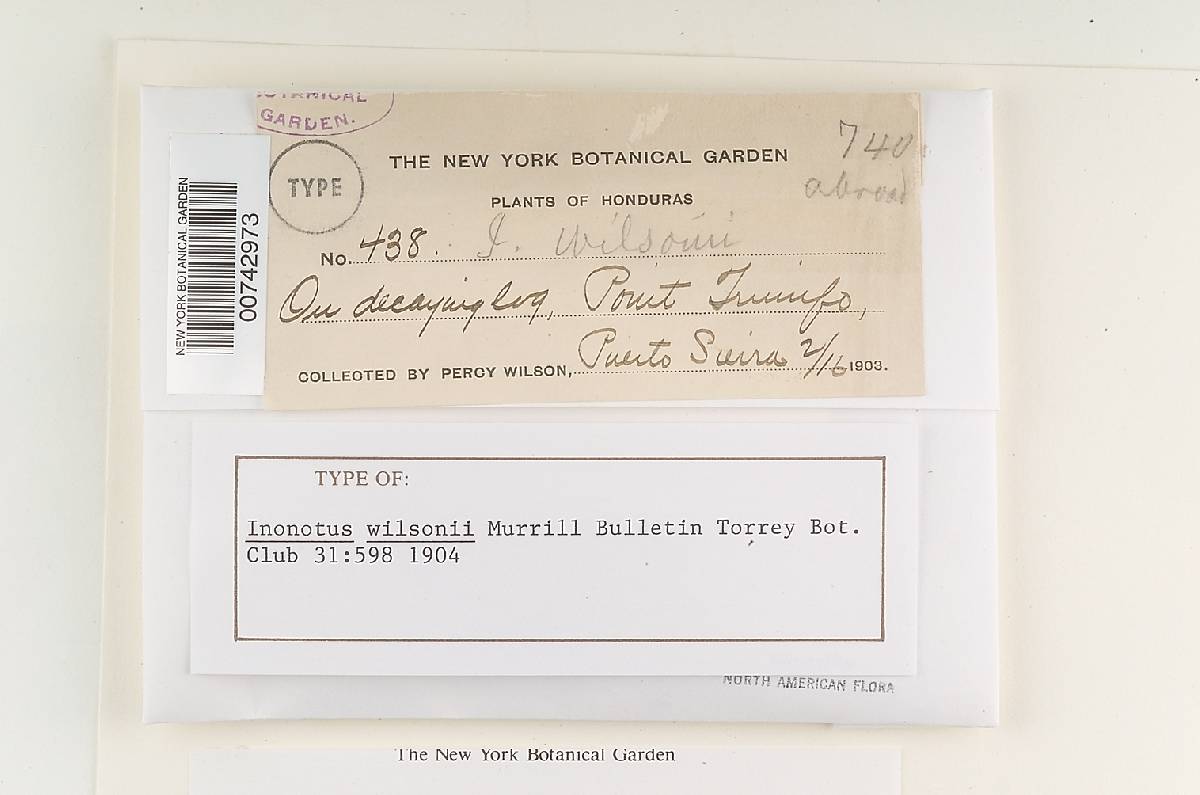 BOTANICAL
GARDEN.
TYPE
THE NEW YORK BOTANICAL GARDEN
740
abroad
PLANTS OF HONDURAS
No. 438. I. Wilsonii
On decaying log, Point Triunfo,
Puerto Sierra 2/16 1903.
COLLECTED BY PERCY WILSON,
NEW YORK BOTANICAL GARDEN
00742973
TYPE OF:
Inonotus wilsonii Murrill Bulletin Torrey Bot.
Club 31:598 1904
NORTH AMERICAN FLORA
The New York Botanical Garden